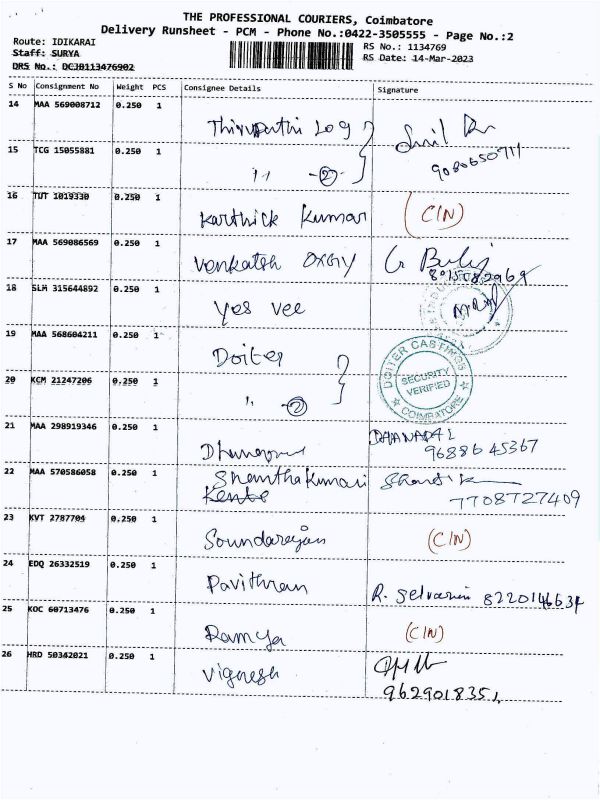 THE PROFESSIONAL COURIERS, Coimbatore
Delivery Runsheet - PCM - Phone No.:0422-3505555 - Page No.:2
Route: IDIKARAI
RS No.: 1134769
Staff: SURYA
RS Date: 14-Mar-2023
DRS No.: DCJB113476902
S No Consignment No Weight PCS Consignee Details Signature
14 MAA 569008712 0.250 1
Thirupathi Log
9080650711
15 TCG 15055881 0.250 1
,, -②-
16 TUT 1019330 0.250 1
Karthick Kumar (CIN)
17 MAA 569086569 0.250 1
Venkatsh OXGIY
8015082969
18 SLM 315644892 0.250 1
Yes Vee
19 MAA 568604211 0.250 1
Doiter
DOITER CASTINGS
SECURITY
VERIFIED
COIMBATORE
20 KCM 21247206 0.250 1
,, -②
21 MAA 298919346 0.250 1
9688645367
22 MAA 570586058 0.250 1
Shanthakumari
7708727409
23 KVT 2787704 0.250 1
Soundarajan (CIN)
24 EDQ 26332519 0.250 1
Pavithran
25 KOC 60713476 0.250 1
Ramya (CIN)
26 HRD 50342021 0.250 1
Vignesh
9629018351